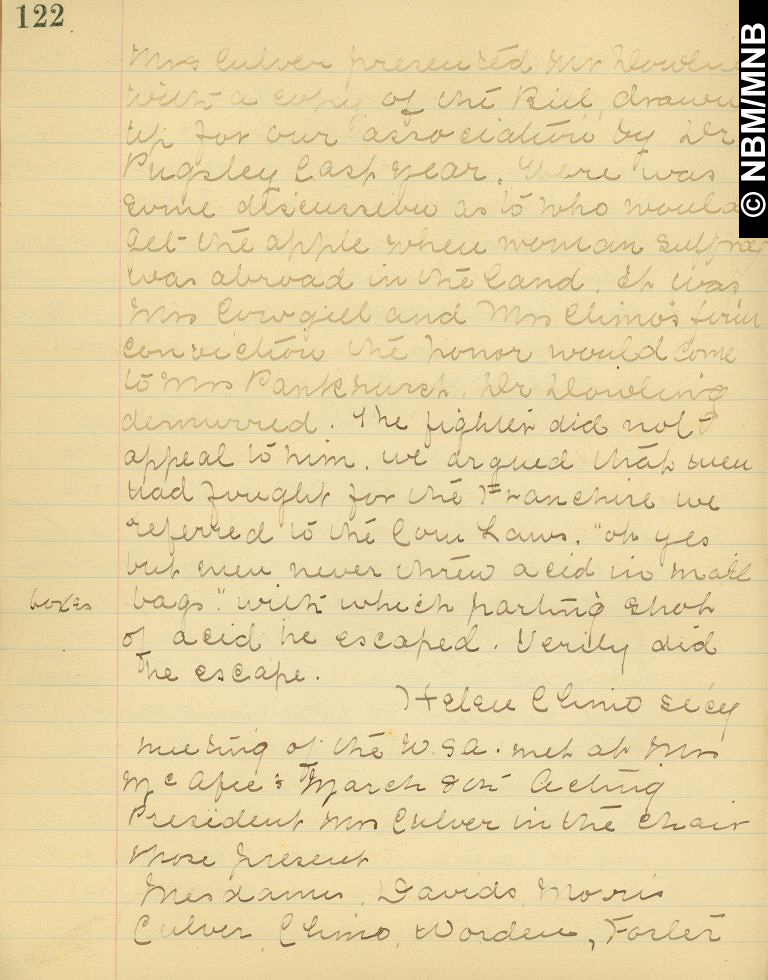 122
© NBM/MNB
Mrs Culver presented Mr Dowling
with a copy of the Bill, drawn
up for our association by Dr
Pugsley last year. There was
some discussion as to who would
get the apple when woman suffrag
was abroad in the land. It was
Mrs Cowgill and Mrs Clino's firm
conviction the honor would come
to Mrs Pankhurst. Dr Dowling
demurred. The fighter did not
appeal to him. we argued that men
had fought for the Franchise we
referred to the Corn Laws. "oh yes
but men never threw acid in mail
boxes bags." with which parting shot
of acid he escaped. Verily did
he escape.
Helen Clino sec'y
meeting of the W.S.A. met at Mrs
McAfee's March 8th Acting
President Mrs Culver in the chair
those present
Mesdames, Davids, Morris
Culver, Clino, Worden, Foster